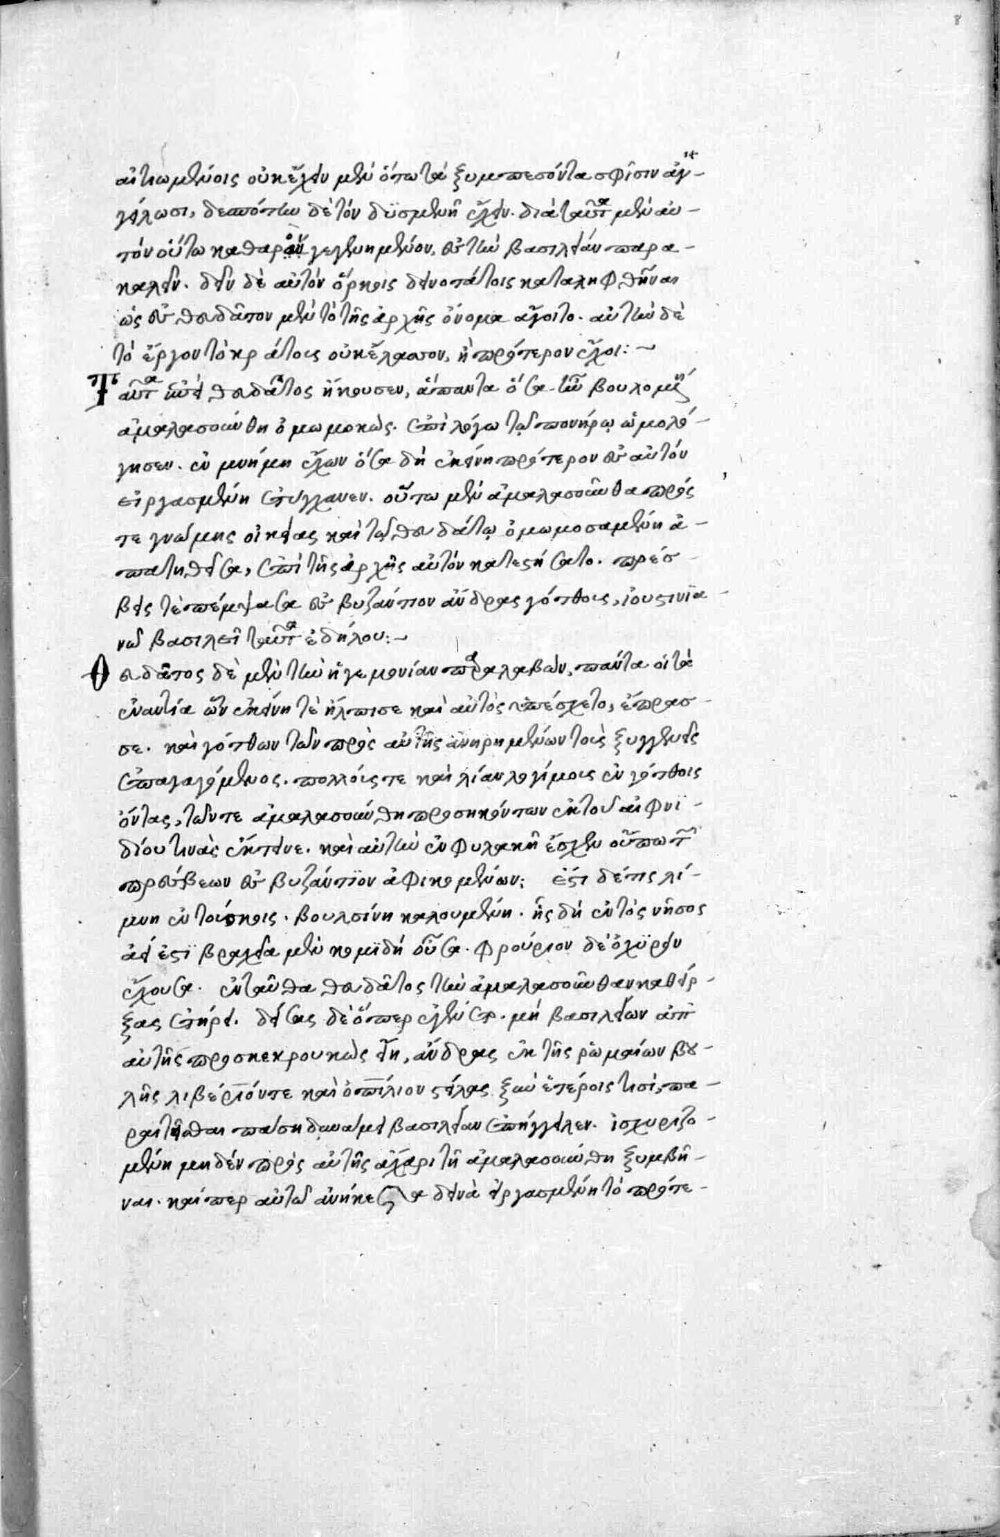 αἰτιωμένοις οὐκ ἔχειν μὲν ὅπω τὰ ξυμπεσόντα σφίσιν ἀγ-
γέλωσι, δεσπότην δὲ τὸν δυσμενῆ ἔχειν. διὰ ταῦτα μὲν αὐ-
τὸν οὕτω καθαρὸν γεγενημένον, ἐς τὴν βασιλείαν παρα-
καλεῖν. δεῖν δὲ αὐτὸν ὅρκοις δεινοτάτοις καταληφθῆναι
ὡς ἐς θευδάτον μὲν τὸ τῆς ἀρχῆς ὄνομα ἄγοιτο. αὐτὴ δὲ
τῷ ἔργῳ τὸ κράτος οὐκ ἔλασσον, ἢ πρότερον ἔχοι:~
Ταῦτα ἐπεὶ θευδάτος ἤκουσεν, ἅπαντα ὅσα ἦν βουλομένῃ
ἀμαλασούνθῃ ὀμωμοκὼς. ἐπὶ λόγῳ τῷ πονηρῷ ὡμολό-
γησεν. ἐν μνήμῃ ἔχων ὅσα δὴ ἐκείνη πρότερον ἐς αὐτὸν
εἰργασμένη ἐτύγχανεν. οὕτω μὲν ἀμαλασοῦνθα πρός
τε γνώμης οἰκείας καὶ τῶν θευδάτῳ ὀμωμοσαμένη ἀ-
πατηθεῖσα, ἐπὶ τῆς ἀρχῆς αὐτὸν κατεστήσατο. πρέσ-
βεις τὲ πέμψασα ἐς βυζάντιον ἄνδρας γότθους, ἰουστινϊα-
νῷ βασιλεῖ ταῦτα ἐδήλου:~
Θευδάτος δὲ μὲν τὴν ἡγεμονίαν παραλαβὼν, πάντα οἱ τὰ
ἐναντία ὧν ἐκείνη τὲ ἤλπισε καὶ αὐτὸς ὑπέσχετο, ἔπρασ-
σε. καὶ γότθων τῶν πρὸς αὐτῆς ἀνῃρημένων τοὺς ξυγγενεῖς
ἐπαγαγόμενος. πολλούς τε καὶ λίαν λογίμους ἐν γότθοις
ὄντας, τῶν τε ἀμαλασούνθῃ προσηκόντων ἐκ τοῦ αἰφνϊ-
δίου τινὰς ἔκτεινε. καὶ αὐτὴν ἐν φυλακῇ ἔσχεν οὔπω τῶν
πρέσβεων ἐς βυζάντϊον ἀφικομένων: ἔστι δέ τις λί-
μνη ἐν τούσκοις. βουλσίνη καλουμένη. ἧς δὴ ἐντὸς νῆσος
ἀεί ἐστι βραχεῖα μὲν κομϊδῆ οὖσα. φρούριον δὲ ὀχῡρὸν
ἔχουσα. ἐνταῦθα θευδάτος τὴν ἀμαλασοῦνθαν καθείρ-
ξας ἐτήρει. δείσας δὲ ὅπερ ἐγένετο. μὴ βασιλέων ἀπ'
αὐτῆς προσκεκρουκὼς εἴη, ἄνδρας ἐκ τῆς ῥωμαίων βου-
λῆς λιβέριόν τε καὶ ὀπιλίονα στείλας ξὺν ἑτέροις τισὶ, πα-
ραιτεῖσθαι πάσῃ δυνάμει βασιλέαν ἐπήγγειλεν. ἰσχυριζο-
μένη μηδὲν πρὸς αὐτῆς ἄχαρι τῇ ἀμαλασούνθῃ ξυμβῆ-
ναι. καίπερ αὐτῷ ἀνήκεστα δεινὰ εἰργασμένη τὸ πρότε-